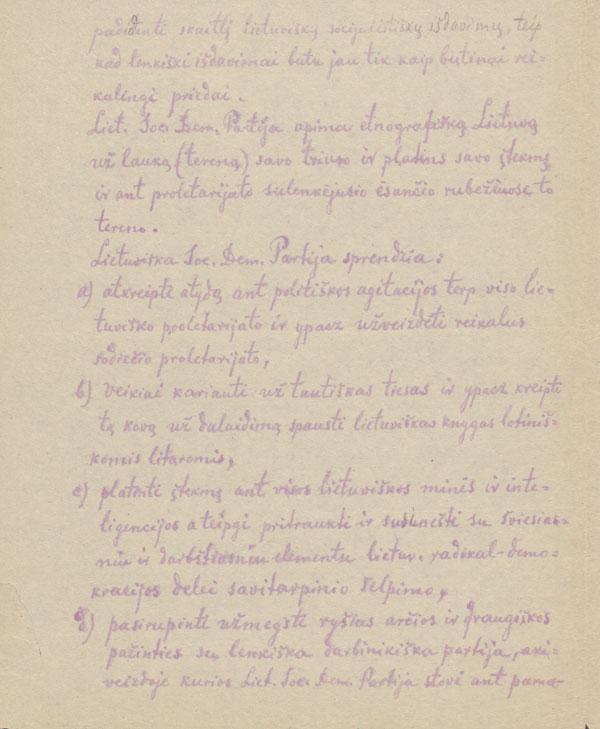 padidinti skaitlį lietuviškų socijalistiškų išdavimų, teip
kad lenkiški išdavimai butu jau tik kaip butinai rei-
kalingi priedai.
Liet. Soc. Dem. Partija apima etnografišką Lietuvą
už lauką (tereną) savo triuso ir platins savo įtekmę
ir ant proletarijato sulenkėjusio esančio rubežiuose to
tereno.
Lietuviška Soc. Dem. Partija sprendžia:
a) atkreipti atydą ant politiškos agitacijos terp viso lie-
tuviško proletarijato ir ypacz užveizdėti reikalus
sodiečio proletarijato,
b) veikiai kariauti už tautiškas tiesas ir ypacz kreipti
tą kovą už dalaidimą spausti lietuviškas knygas lotiniš-
komis litaromis,
c) platinti įtekmę ant visos lietuviškos minės ir inte-
ligencijos a teipgi pritraukti ir susinešti su šviesias-
niu ir darbštiasniu elementu lietuv. radikal-demo-
kracijos delei savitarpinio šelpimo,
d) pasirupinti užmegsti ryšius arčios ir draugiškos
pažinties su lenkiška darbinikiška partija, aki-
veizdoje kurios Liet. Soc. Dem. Partija stovi ant pama-